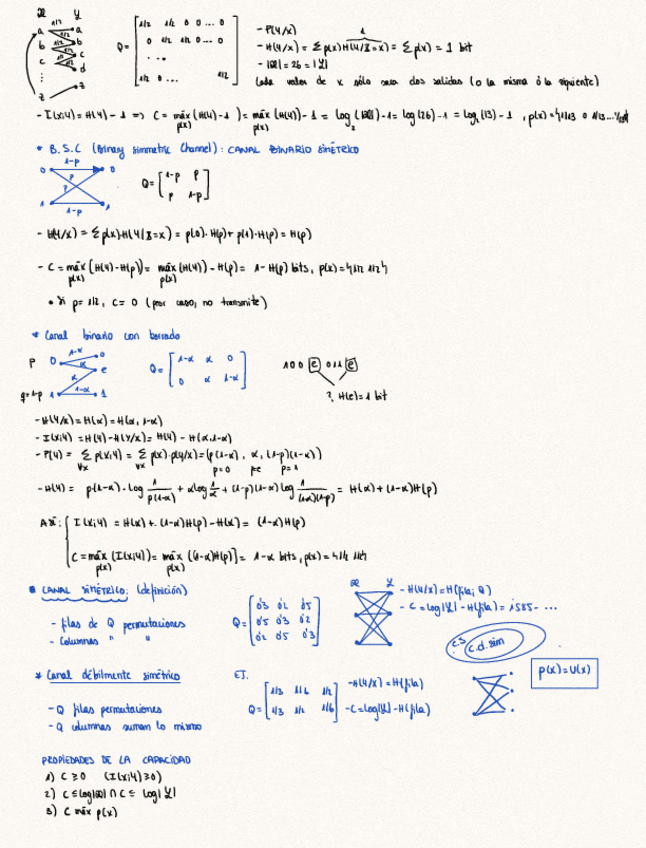 𝒳 𝒴
1/2
a a
b b
c c
⋮ d
z z
Q = [ 1/2 1/2 0 0 ... 0
0 1/2 1/2 0 ... 0
...
1/2 0 ... 1/2 ]
- P(Y/X)
- H(Y/X) = Σ p(x) H(Y/X=x) = Σ p(x) = 1 bit
- |𝒳| = 26 = |𝒴|
Cada valor de x sólo saca dos salidas (o la misma ó la siguiente)
- I(X;Y) = H(Y) - 1 => C = máx p(x) (H(Y) - 1) = máx p(x) (H(Y)) - 1 = log₂(|𝒳|) - 1 = log(26) - 1 = log₂(13) - 1 , p(x) =
* B.S.C (Binary Simmetric Channel): CANAL BINARIO SIMÉTRICO
0 1-p 0
p
p
1 1-p 1
Q = [ 1-p p
p 1-p ]
- H(Y/X) = Σ p(x) H(Y/X=x) = p(0). H(p) + p(1). H(p) = H(p)
- C = máx p(x) (H(Y) - H(p)) = máx p(x) (H(Y)) - H(p) = 1 - H(p) bits, p(x) = {1/2 1/2}
• Si p = 1/2, C = 0 (peor caso, no transmite)
* Canal binario con borrado
p 0 1-α 0
α e
α
q=1-p 1 1-α 1
Q = [ 1-α α 0
0 α 1-α ]
1 0 0 e 0 1 1 e
?, H(e) = 1 bit
- H(Y/X) = H(α) = H(α, 1-α)
- I(X;Y) = H(Y) - H(Y/X) = H(Y) - H(α, 1-α)
- P(Y) = Σ ∀x p(x;y) = Σ ∀x p(x) . p(y/x) = (p(1-α) , α , (1-p)(1-α))
- H(Y) = p(1-α) . log 1/p(1-α) + α log 1/α + (1-p)(1-α) log 1/(1-α)(1-p) = H(α) + (1-α) H(p)
Así: { I(X;Y) = H(α) + (1-α) H(p) - H(α) = (1-α) H(p)
C = máx p(x) (I(X;Y)) = máx p(x) [(1-α) H(p)] = 1-α bits, p(x) = {1/2 1/2}
CANAL SIMÉTRICO: (definición)
- filas de Q permutaciones
- Columnas " "
Q = [ 0'3 0'2 0'5
0'5 0'3 0'2
0'2 0'5 0'3 ]
𝒳 𝒴
- H(Y/X) = H(fila; Q)
- C = log|𝒴| - H(fila) = 1'585 - ...
c.s
c.d.sim
p(x) = U(x)
* Canal débilmente simétrico
- Q filas permutaciones
- Q columnas suman lo mismo
EJ.
Q = [ 1/3 1/6 1/2
1/3 1/2 1/6 ]
- H(Y/X) = H(fila)
- C = log|𝒴| - H(fila)
PROPIEDADES DE LA CAPACIDAD
1) C ≥ 0 (I(X;Y) ≥ 0)
2) C ≤ log|𝒳| ∩ C ≤ log|𝒴|
3) C máx p(x)